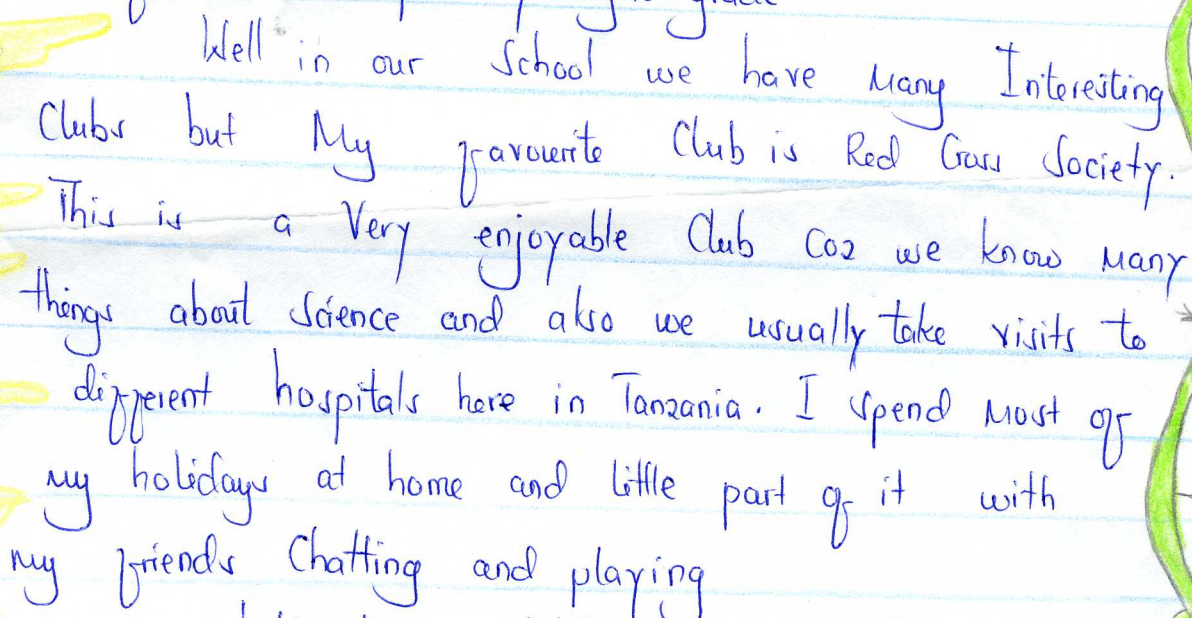 Well in our School we have Many Interesting
Clubs but My favourite Club is Red Cross Society.
This is a Very enjoyable Club Coz we know Many
things about Science and also we usually take visits to
different hospitals here in Tanzania. I spend Most of
my holidays at home and little part of it with
my friends Chatting and playing